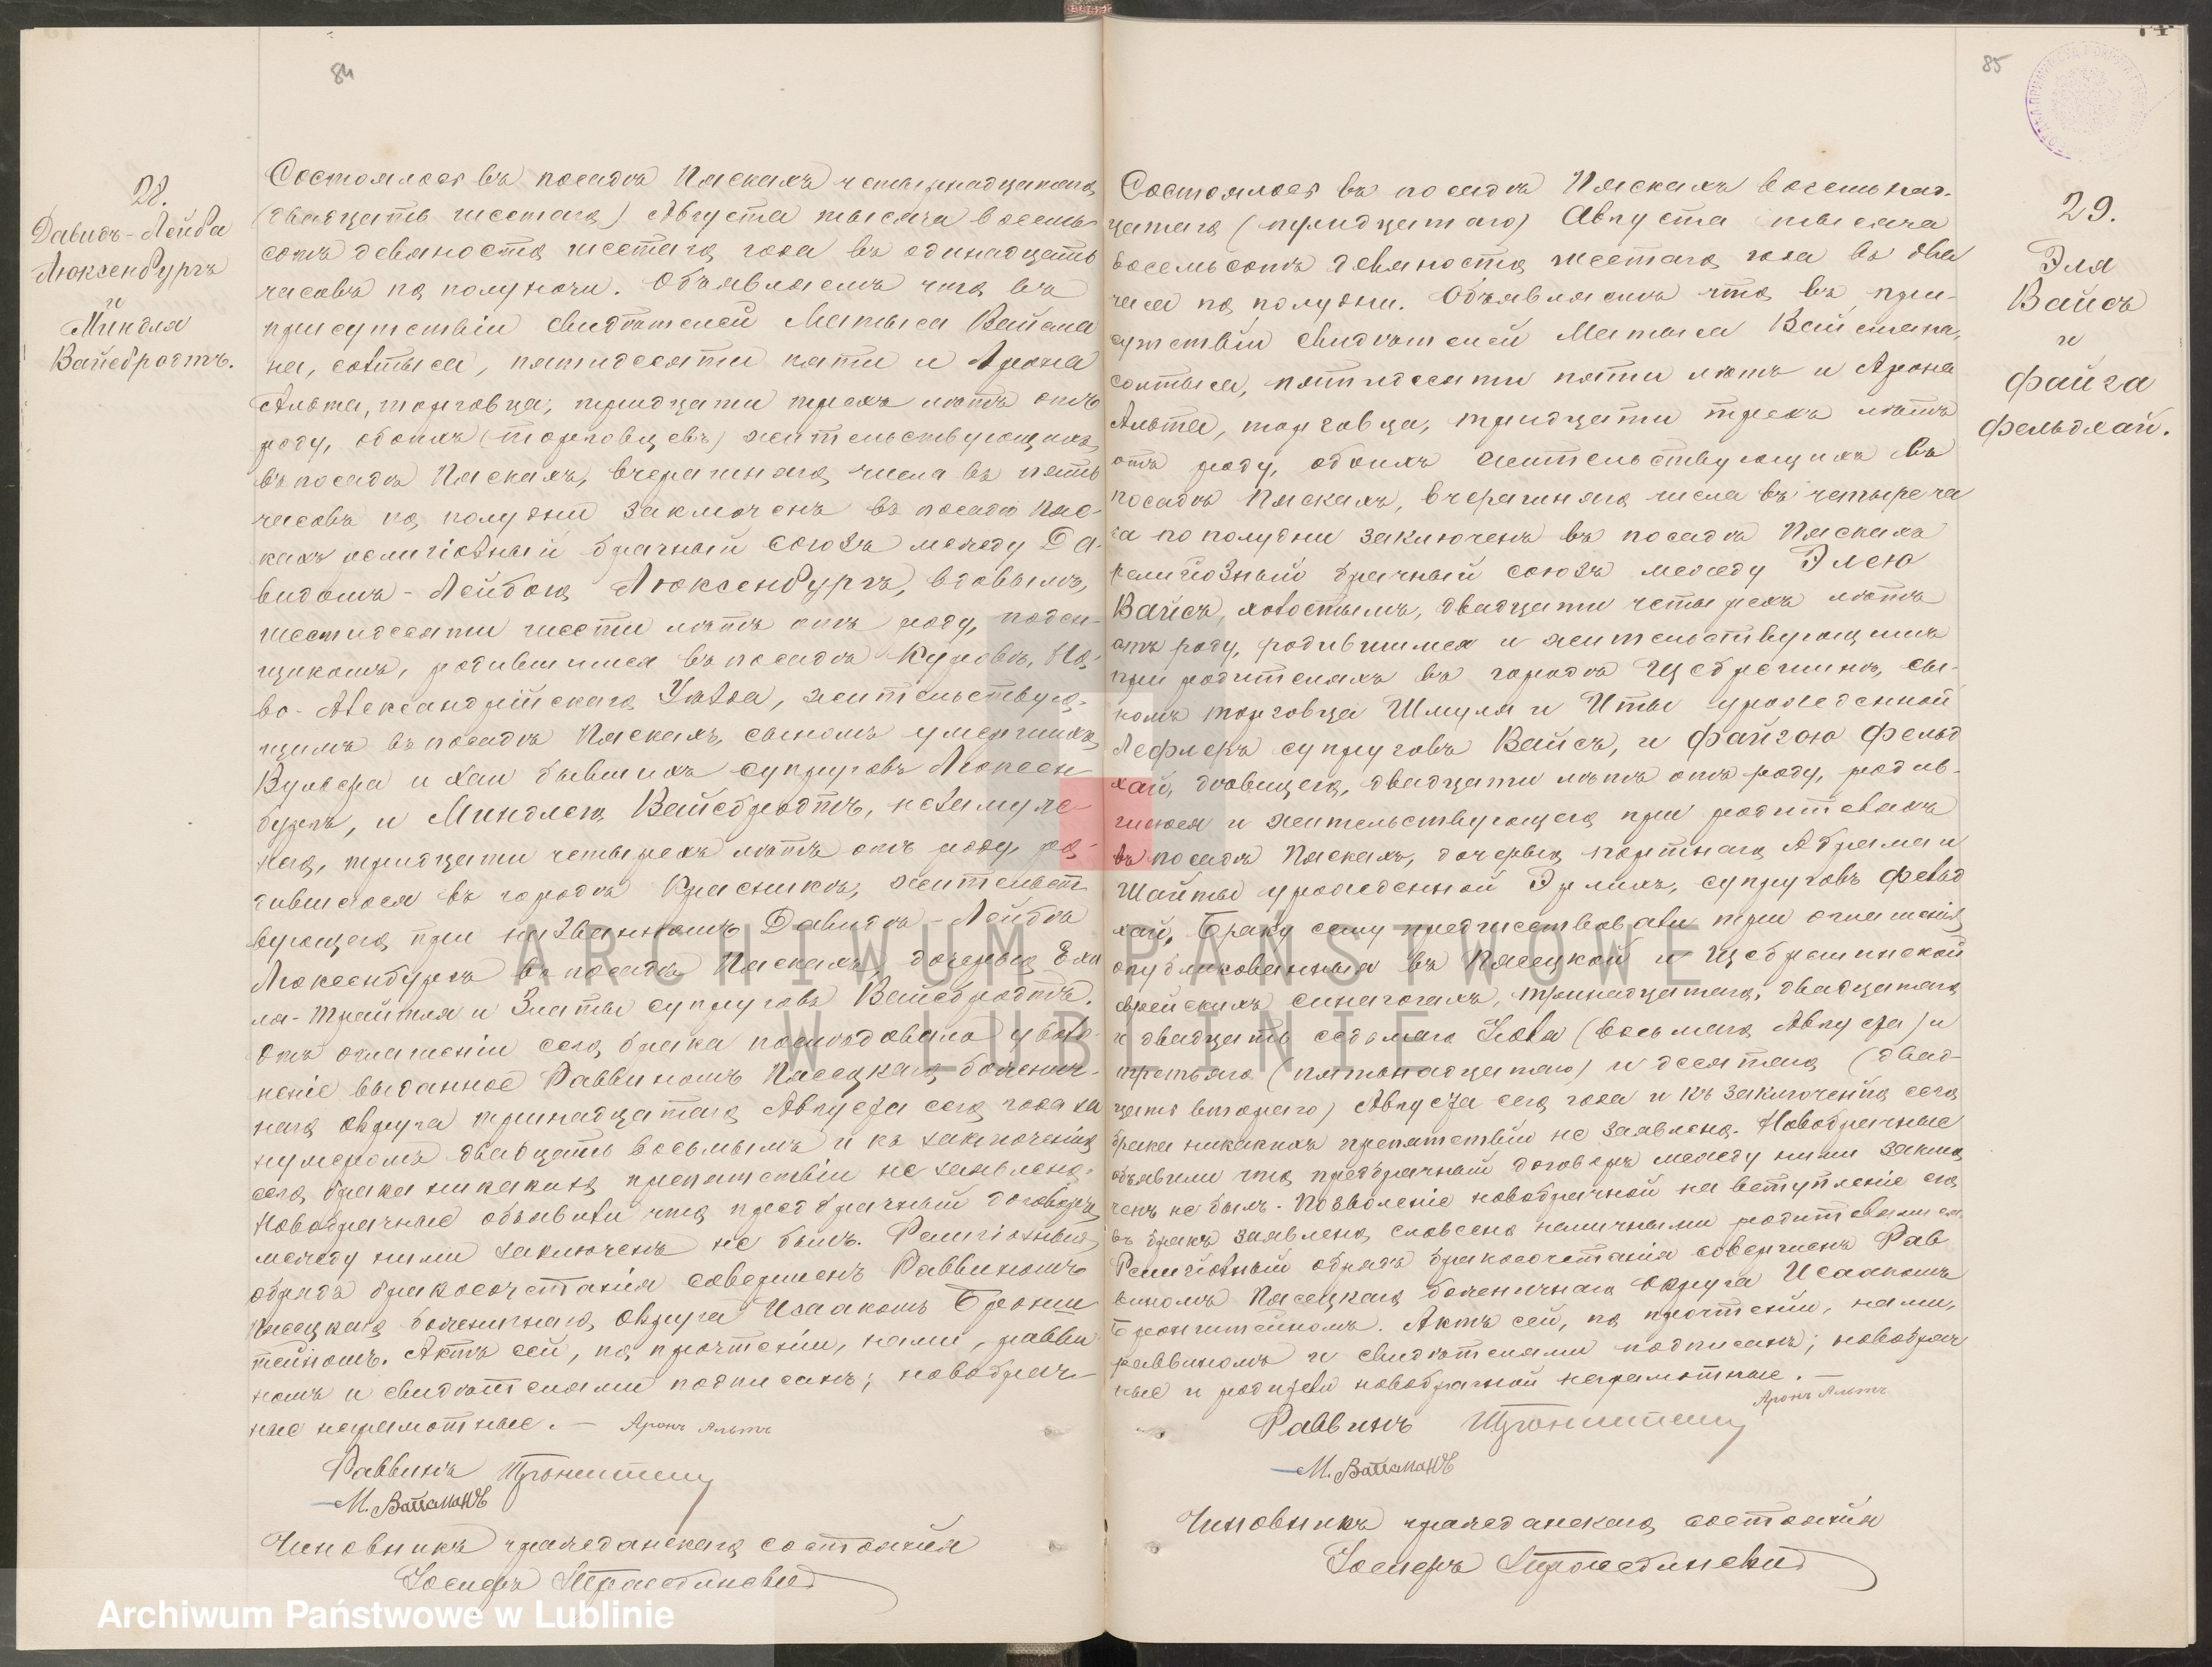 84
28.
Давидъ-Лейба
Люксенбургъ
и
Миндля
Вайсбродтъ.
Состоялось въ посадѣ Пяскахъ четырнадцатаго
(двадцать шестаго) Августа тысяча восемь-
сотъ девяноста шестаго года въ одинадцать
часовъ по полуночи. Объявляемъ что въ
присутствіи свидѣтелей Матыса Вайсма
на, солтыса, пятидесяти пяти и Арона
Альта, торговца, тридцати трехъ лѣтъ отъ
роду, обоихъ (торговцевъ) жительствующихъ
въ посадѣ Пяскахъ, вчерашняго числа въ пять
часовъ по полудни заключенъ въ посадѣ Пяс-
кахъ религіозный брачный союзъ между Да-
видомъ-Лейбою Люксенбургъ, вдовымъ,
шестидесяти шести лѣтъ отъ роду, поден-
щикомъ, родившимся въ посадѣ Куровѣ, Но-
во-Александрійскаго Уѣзда, жительствую-
щимъ въ посадѣ Пяскахъ, сыномъ умершихъ
и Хаи бывшихъ супруговъ Люксен
бургъ, и Миндлею Вайсбродтъ, незамуж
нею, тридцати четырехъ лѣтъ отъ роду, ро-
дившаюся въ городѣ Красникѣ, жительст
вующею при названномъ Давидѣ-Лейбѣ
Люксенбургъ въ посадѣ Пяскахъ, дочерью Ехи
ла-Трайтля и Златы супруговъ Вайсбродтъ.
Отъ оглашеніи сего брака послѣдовало уволь-
неніе выданное Раввиномъ Пясецкаго божнич-
наго округа тринадцатаго Августа сего года за
нумеромъ двадцать восьмымъ и къ заключенію
сего брака никакихъ препятствіи не заявлено.
Новобрачные объявили что предбрачный договоръ
между ними заключенъ не былъ. Религіозный
обрядъ бракосочетанія совершенъ Раввиномъ
Пясецкаго божничнаго округа Исаакомъ Бронш
тейномъ. Актъ сей, по прочтеніи, нами, равви
номъ и свидѣтелями подписанъ; новобрач-
ные неграмотные. — Аронъ Альтъ
Раввинъ
М. Вайсманъ
Чиновникъ гражданскаго состоянія
85
29.
Эля
Вайсъ
и
Файга
Фельдхай.
Состоялось въ посадѣ Пяскахъ восемьнад-
цатаго (тридцатаго) Августа тысяча
восемьсотъ девяноста шестаго года въ два
часа по полудни. Объявляемъ что въ при-
сутствіи свидѣтелей Матыса Вайсмана,
солтыса, пятидесяти пяти лѣтъ и Арона
Альта, торговца, тридцати трехъ лѣтъ
отъ роду, обоихъ жительствующихъ въ
посадѣ Пяскахъ, вчерашняго числа въ четыре ча
са по полудни заключенъ въ посадѣ Пяскахъ
религіозный брачный союзъ между Элею
Вайсъ, холостымъ, двадцати четырехъ лѣтъ
отъ роду, родившимся и жительствующимъ
при родителяхъ въ городѣ Щебрешинѣ, сы-
номъ торговца Шмуля и Иты урожденной
Лефлеръ супруговъ Вайсъ, и Файгою Фельд
хай, дѣвицею, двадцати лѣтъ отъ роду, родив-
шеюся и жительствующею при родителяхъ
въ посадѣ Пяскахъ, дочерью портнаго Абрама и
Шайты урожденной Эрлихъ, супруговъ Фельд
хай. Браку сему предшествовали три оглашенія
опубликованныя въ Пясецкой и Щебрешинской
еврейскихъ синагогахъ, тринадцатаго, двадцатаго
и двадцать седьмаго Іюля (восьмаго Августа) и
третьяго (пятьнадцатаго) и десятаго (двад-
цать втораго) Августа сего года и къ заключенію сего
брака никакихъ препятствіи не заявлено. Новобрачные
объявили что предбрачный договоръ между ними заклю
ченъ не былъ. Позволеніе новобрачной на вступленіе ею
въ бракъ заявлено словесно наличными родителями ея.
Религіозный обрядъ бракосочетанія совершенъ Рав
виномъ Пясецкаго божничнаго округа Исаакомъ
Бронштейномъ. Актъ сей, по прочтеніи, нами,
раввиномъ и свидѣтелями подписанъ; новобрач
ные и родители новобрачной неграмотные. —
Аронъ Альтъ
Раввинъ
М. Вайсманъ
Чиновникъ гражданскаго состоянія
ARCHIWUM PAŃSTWOWE
W LUBLINIE
Archiwum Państwowe w Lublinie